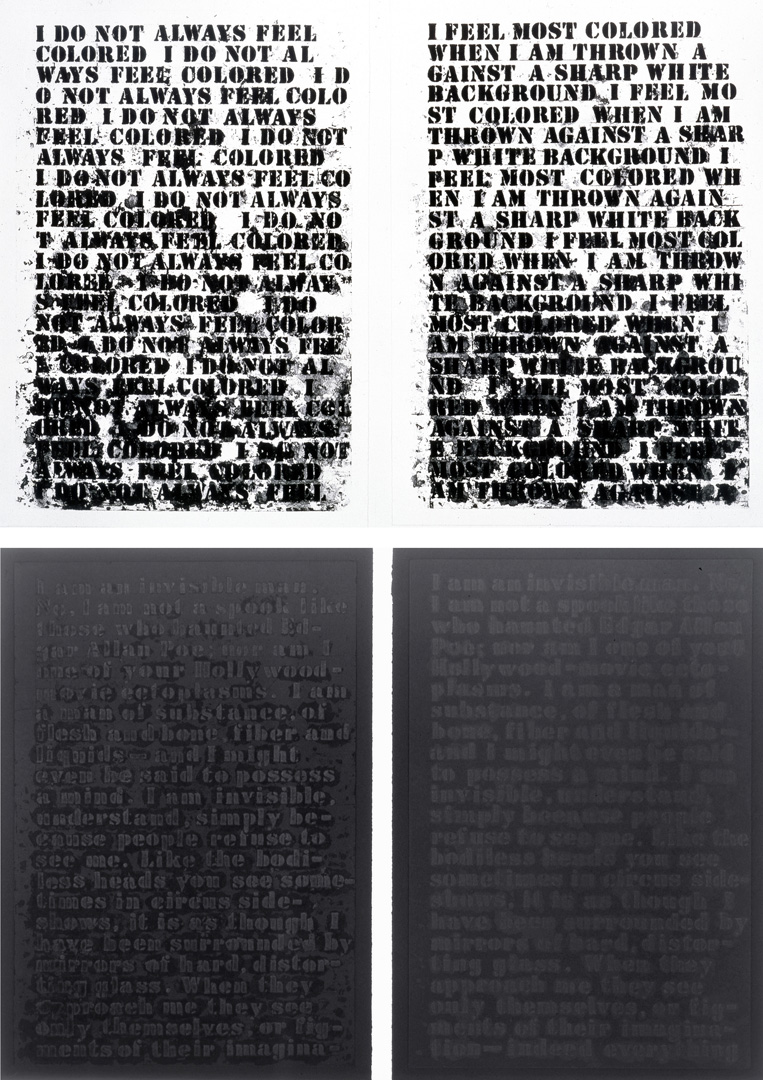 I DO NOT ALWAYS FEEL
COLORED I DO NOT AL
WAYS FEEL COLORED I D
O NOT ALWAYS FEEL COLO
RED I DO NOT ALWAYS
FEEL COLORED I DO NOT
ALWAYS FEEL COLORED
I DO NOT ALWAYS FEEL CO
LORED I DO NOT ALWAYS
FEEL COLORED I DO NO
T ALWAYS FEEL COLORED
I DO NOT ALWAYS FEEL CO
LORED I DO NOT ALWAY
S FEEL COLORED I DO
NOT ALWAYS FEEL COLOR
ED I DO NOT ALWAYS FEE
L COLORED I DO NOT AL
WAYS FEEL COLORED I
DO NOT ALWAYS FEEL COL
ORED I DO NOT ALWAYS
FEEL COLORED I DO NOT
ALWAYS FEEL COLORED
I DO NOT ALWAYS FEEL
I FEEL MOST COLORED
WHEN I AM THROWN A
GAINST A SHARP WHITE
BACKGROUND I FEEL MO
ST COLORED WHEN I AM
THROWN AGAINST A SHAR
P WHITE BACKGROUND I
FEEL MOST COLORED WH
EN I AM THROWN AGAIN
ST A SHARP WHITE BACK
GROUND I FEEL MOST COL
ORED WHEN I AM THROW
N AGAINST A SHARP WHI
TE BACKGROUND I FEEL
MOST COLORED WHEN I
AM THROWN AGAINST A
SHARP WHITE BACKGROU
ND I FEEL MOST COLO
RED WHEN I AM THROWN
AGAINST A SHARP WHIT
E BACKGROUND I FEEL
MOST COLORED WHEN I
AM THROWN AGAINST A
I am an invisible man.
No, I am not a spook like
those who haunted Ed-
gar Allan Poe; nor am I
one of your Hollywood-
movie ectoplasms. I am
a man of substance, of
flesh and bone, fiber and
liquids—and I might
even be said to possess
a mind. I am invisible,
understand, simply be-
cause people refuse to
see me. Like the bodi-
less heads you see some-
times in circus side-
shows, it is as though I
have been surrounded by
mirrors of hard, distor-
ting glass. When they
approach me they see
only themselves, or fig-
ments of their imagina-
I am an invisible man. No,
I am not a spook like those
who haunted Edgar Allan
Poe; nor am I one of your
Hollywood-movie ecto-
plasms. I am a man of
substance, of flesh and
bone, fiber and liquids—
and I might even be said
to possess a mind. I am
invisible, understand,
simply because people
refuse to see me. Like the
bodiless heads you see
sometimes in circus side-
shows, it is as though I
have been surrounded by
mirrors of hard, distor-
ting glass. When they
approach me they see
only themselves, or fig-
ments of their imagina-
tion—indeed everything